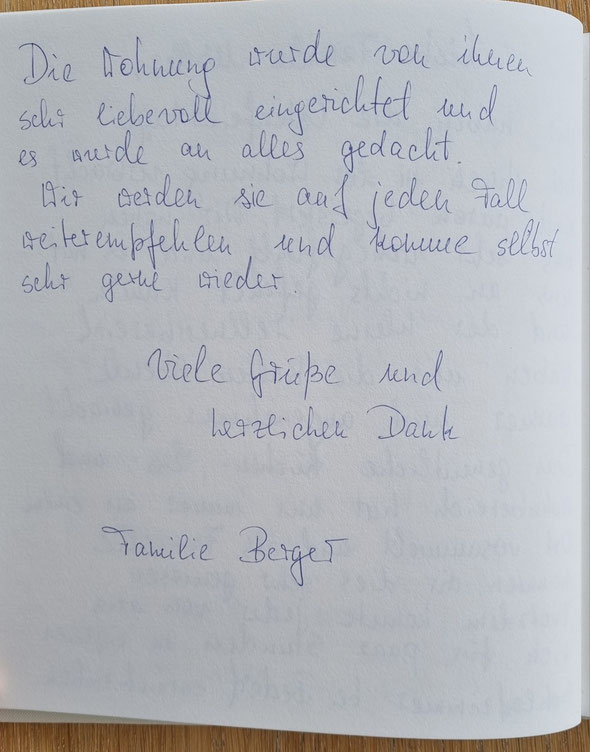 Die Wohnung wurde von ihnen
sehr liebevoll eingerichtet und
es wurde an alles gedacht.
Wir werden sie auf jeden Fall
weiterempfehlen und komme selbst
sehr gerne wieder
Viele Grüße und
herzlichen Dank
Familie Berger